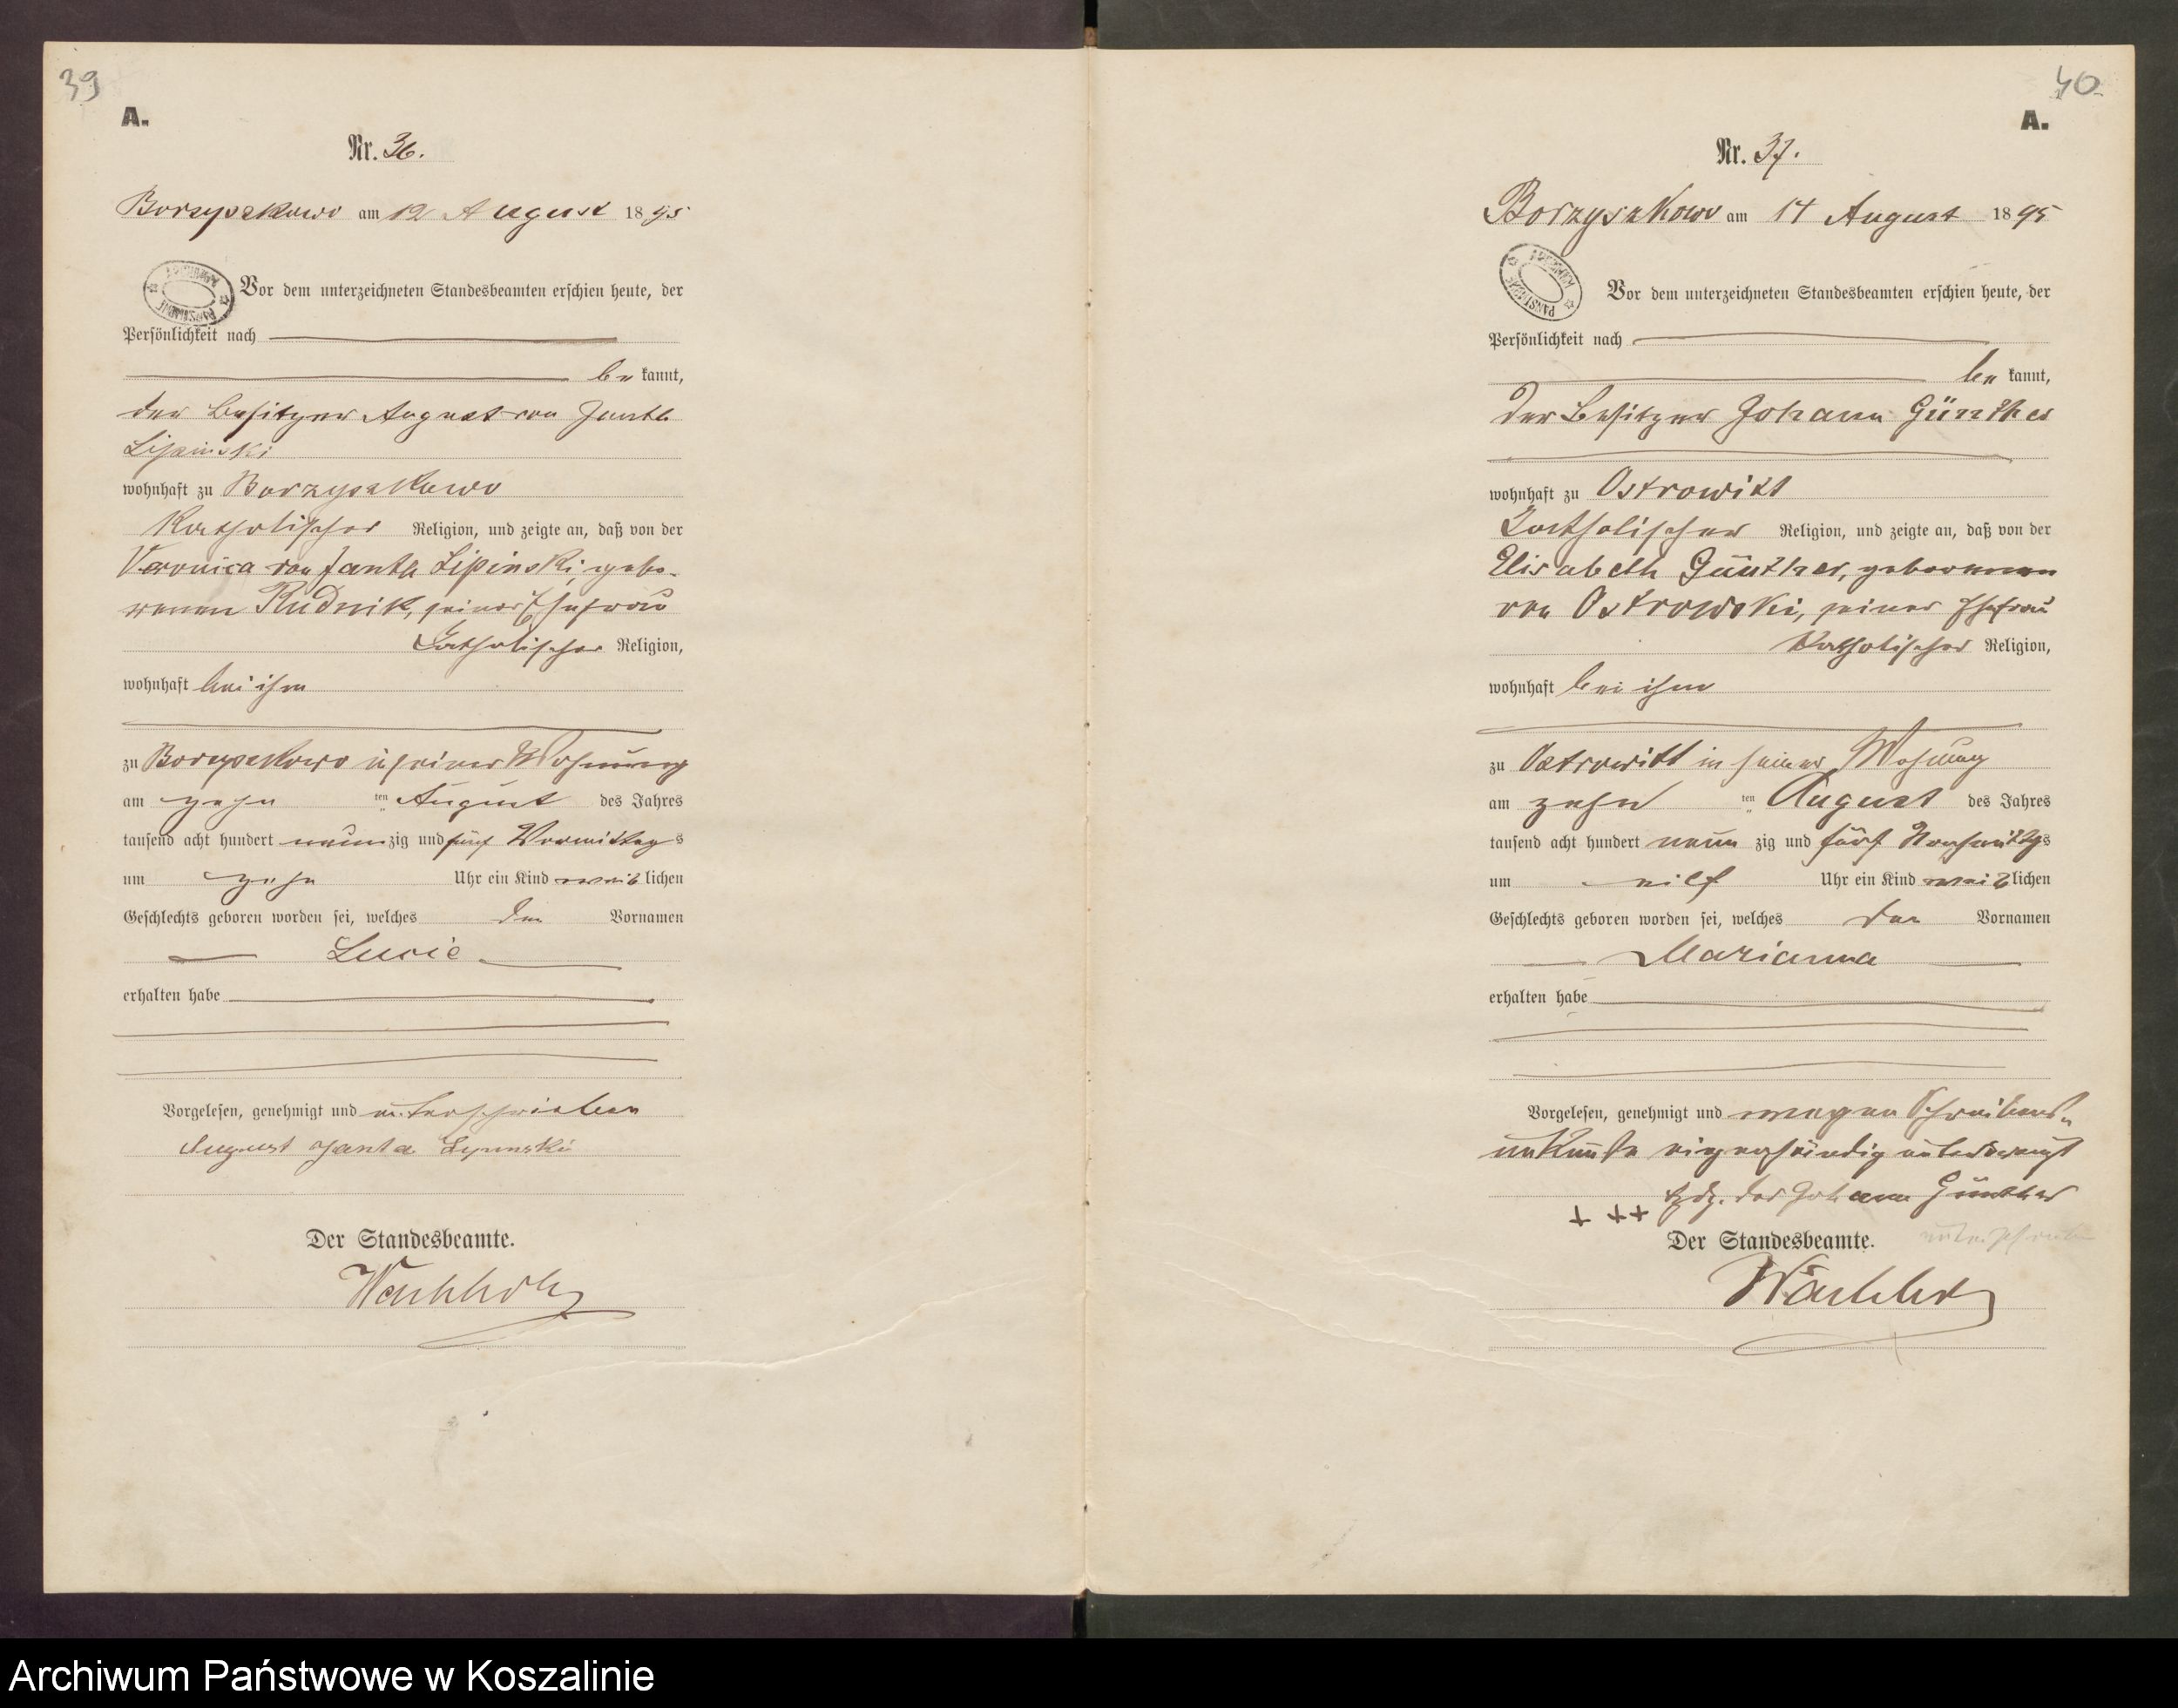 39
A.
Nr. 36.
Borzyszkowo am 12 August 1895
Vor dem unterzeichneten Standesbeamten erschien heute, der
Persönlichkeit nach
be kannt,
der Besitzer August von Janta
Lipinski
wohnhaft zu Borzyszkowo
katholischer Religion, und zeigte an, daß von der
Veronica von Janta Lipinski, gebo-
renen Rudnik, seiner Ehefrau
katholischer Religion,
wohnhaft bei ihm
zu Borzyszkowo in seiner Wohnung
am zehn ten August des Jahres
tausend acht hundert neun zig und fünf Vormittag s
um zehn Uhr ein Kind weib lichen
Geschlechts geboren worden sei, welches den Vornamen
Lucie
erhalten habe
Vorgelesen, genehmigt und unterschrieben
August Janta Lipinski
Der Standesbeamte.
40
A.
Nr. 37.
Borzyszkowo am 14 August 1895
PAŃSTWOWE
Vor dem unterzeichneten Standesbeamten erschien heute, der
Persönlichkeit nach
be kannt,
der Besitzer Johann Günther
wohnhaft zu Ostrowitt
katholischer Religion, und zeigte an, daß von der
Elisabeth Günther, geborenen
von Ostrowski, seiner Ehefrau
katholischer Religion,
wohnhaft bei ihm
zu Ostrowitt in seiner Wohnung
am zehn ten August des Jahres
tausend acht hundert neun zig und fünf Nachmittgs
um elf Uhr ein Kind weib lichen
Geschlechts geboren worden sei, welches den Vornamen
Marianna
erhalten habe
Vorgelesen, genehmigt und wegen Schreibens-
unkunde eigenhändig unterkreuzt
+ ++ hdz. des Johann Günther
Der Standesbeamte.
Archiwum Państwowe w Koszalinie